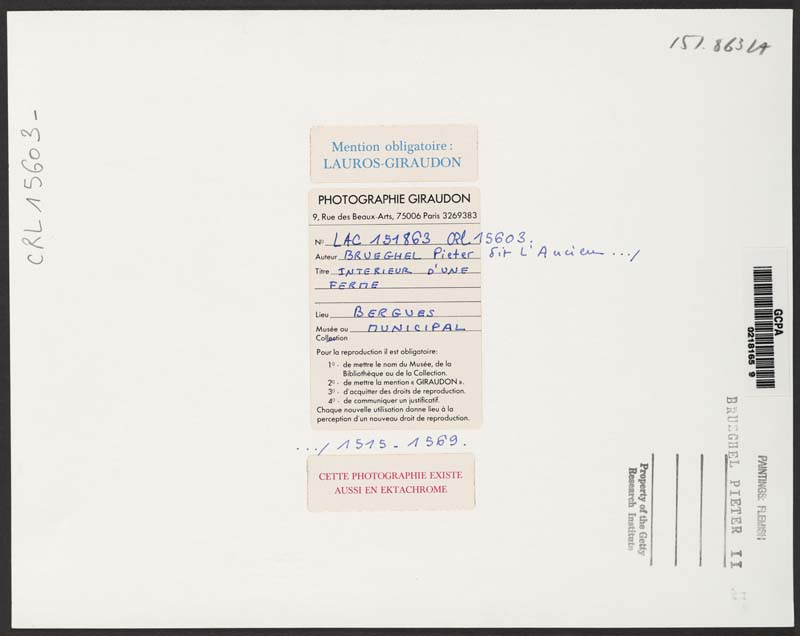 151.863 LA
CRL 15603-
Mention obligatoire :
LAUROS-GIRAUDON
PHOTOGRAPHIE GIRAUDON
9, Rue des Beaux-Arts, 75006 Paris 3269383
No LAC 151863 CRL 15603.
Auteur BRUEGHEL Pieter dit L'Ancien .../
Titre INTERIEUR D'UNE
FERME
Lieu BERGUES
Musée ou MUNICIPAL
Collection
Pour la reproduction il est obligatoire:
1o - de mettre le nom du Musée, de la
Bibliothèque ou de la Collection.
2o - de mettre la mention « GIRAUDON ».
3o - d'acquitter des droits de reproduction.
4o - de communiquer un justificatif.
Chaque nouvelle utilisation donne lieu à la
perception d'un nouveau droit de reproduction.
.../ 1515 - 1569.
CETTE PHOTOGRAPHIE EXISTE
AUSSI EN EKTACHROME
GCPA
0218165 9
PAINTINGS: FLEMISH
BRUEGHEL PIETER II
Property of the Getty
Research Institute